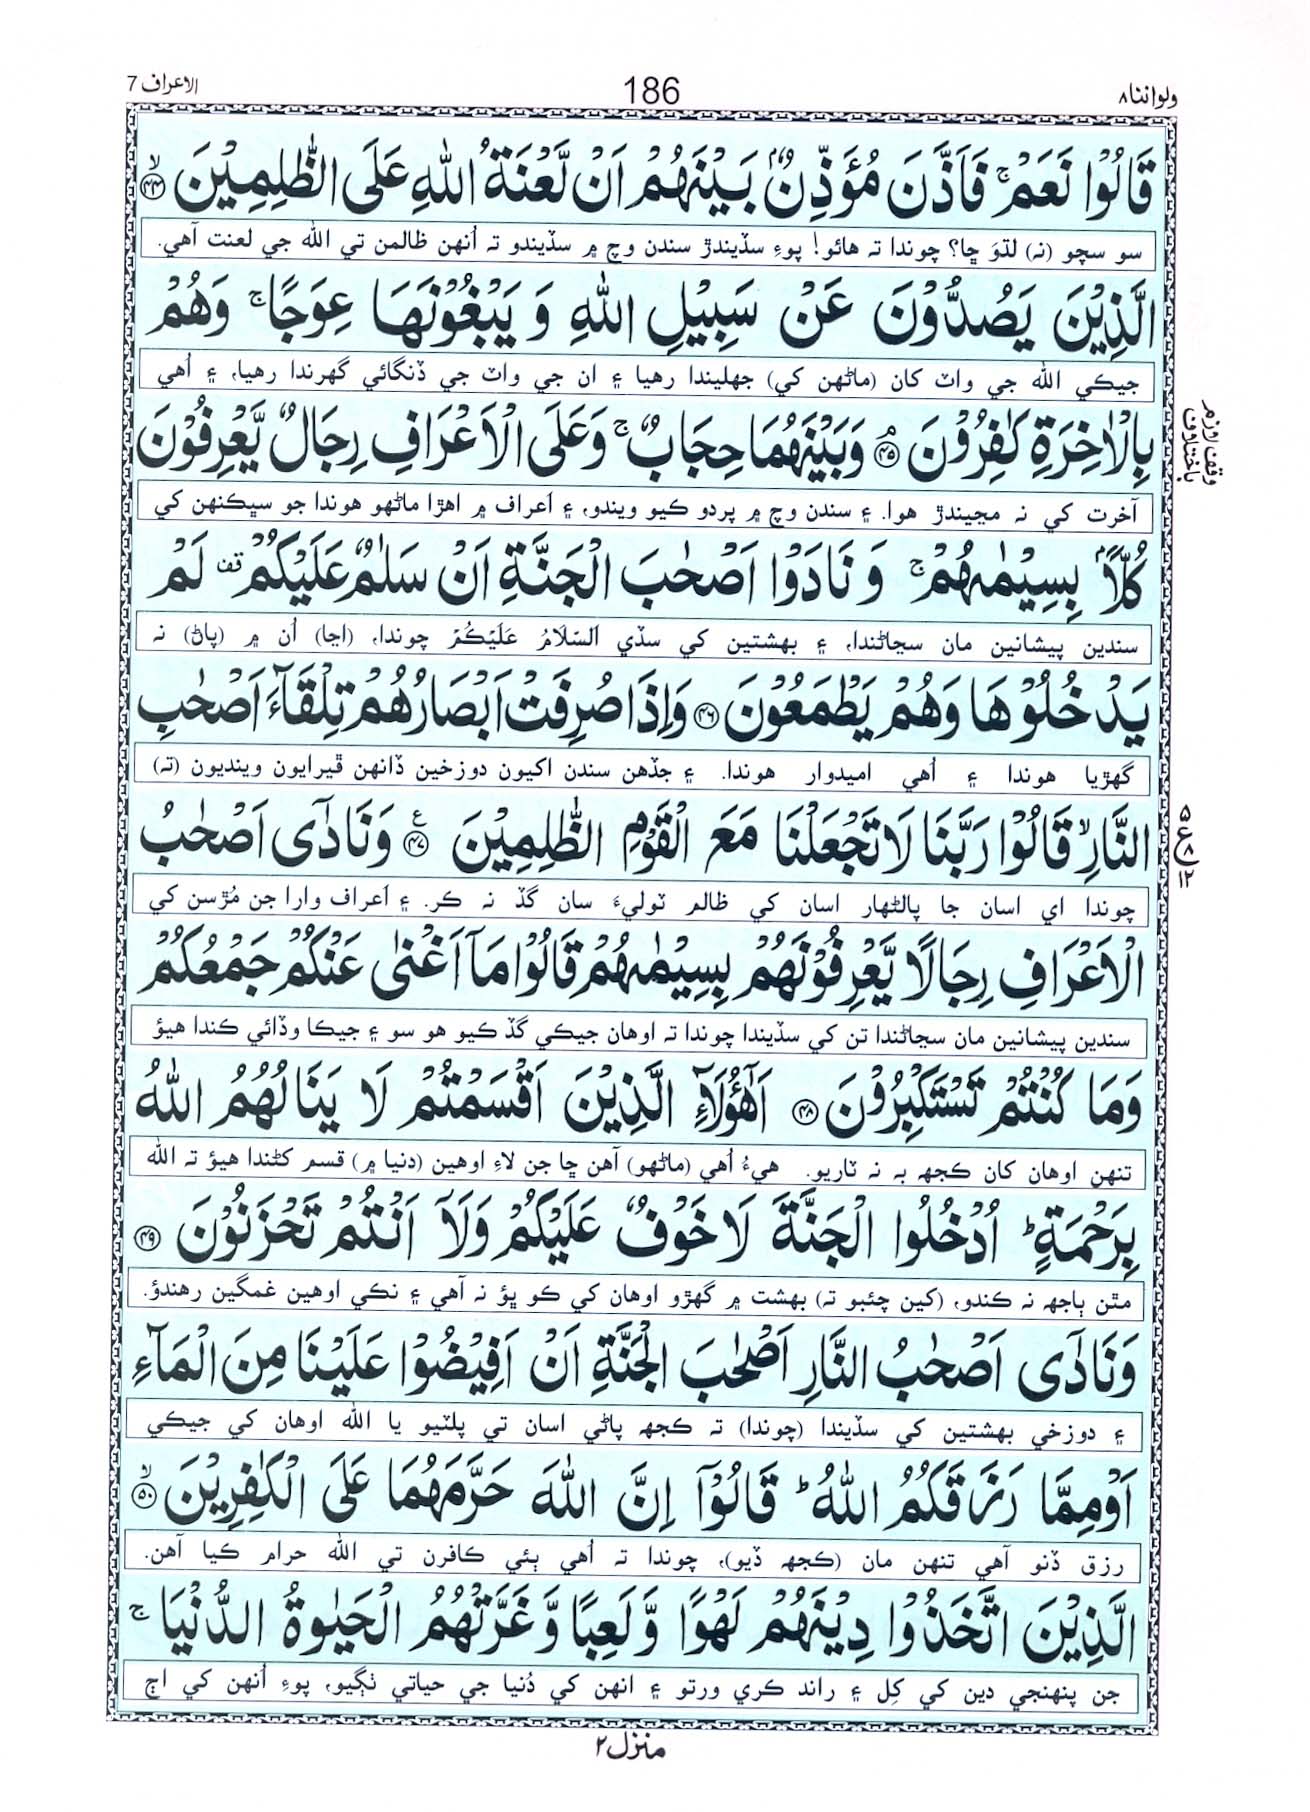 ولواننا ٨
186
الاعراف 7
قَالُوْا نَعَمْ ۚ فَاَذَّنَ مُؤَذِّنٌۢ بَيْنَهُمْ اَنْ لَّعْنَةُ اللّٰهِ عَلَى الظّٰلِمِيْنَ ﴿۴۴﴾ۙ
سو سچو (نہ) لڌوَ ڇا؟ چوندا تہ هائو! پوءِ سڏيندڙ سندن وچ ۾ سڏيندو تہ اُنهن ظالمن تي الله جي لعنت آهي.
الَّذِيْنَ يَصُدُّوْنَ عَنْ سَبِيْلِ اللّٰهِ وَ يَبْغُوْنَهَا عِوَجًا ۚ وَهُمْ
جيڪي الله جي واٽ کان (ماڻهن کي) جهليندا رهيا ۽ ان جي واٽ جي ڏنگائي گهرندا رهيا، ۽ اُهي
بِالْاٰخِرَةِ كٰفِرُوْنَ ﴿۴۵﴾ۘ وَبَيْنَهُمَا حِجَابٌ ۚ وَعَلَى الْاَعْرَافِ رِجَالٌ يَّعْرِفُوْنَ
آخرت کي نہ مڃيندڙ هوا. ۽ سندن وچ ۾ پردو ڪيو ويندو، ۽ اَعراف ۾ اهڙا ماڻهو هوندا جو سڀڪنهن کي
كُلًّاۢ بِسِيْمٰىهُمْ ۚ وَ نَادَوْا اَصْحٰبَ الْجَنَّةِ اَنْ سَلٰمٌ عَلَيْكُمْ ۟ لَمْ
سندين پيشانين مان سڃاڻندا، ۽ بهشتين کي سڏي اَلسَّلَامُ عَلَيْكُمْ چوندا، (اڃا) اُن ۾ (پاڻ) نہ
يَدْخُلُوْهَا وَهُمْ يَطْمَعُوْنَ ﴿۴۶﴾ وَاِذَا صُرِفَتْ اَبْصَارُهُمْ تِلْقَآءَ اَصْحٰبِ
گهڙيا هوندا ۽ اُهي اميدوار هوندا. ۽ جڏهن سندن اکيون دوزخين ڏانهن ڦيرايون وينديون (تہ)
النَّارِ ۙ قَالُوْا رَبَّنَا لَا تَجْعَلْنَا مَعَ الْقَوْمِ الظّٰلِمِيْنَ ﴿۴۷﴾ۧ وَنَادٰٓى اَصْحٰبُ
چوندا اي اسان جا پالڻهار اسان کي ظالم ٽوليءَ سان گڏ نہ ڪر. ۽ اَعراف وارا جن مُڙسن کي
الْاَعْرَافِ رِجَالًا يَّعْرِفُوْنَهُمْ بِسِيْمٰىهُمْ قَالُوْا مَآ اَغْنٰى عَنْكُمْ جَمْعُكُمْ
سندين پيشانين مان سڃاڻندا تن کي سڏيندا چوندا تہ اوهان جيڪي گڏ ڪيو هو سو ۽ جيڪا وڏائي ڪندا هيؤ
وَمَا كُنْتُمْ تَسْتَكْبِرُوْنَ ﴿۴۸﴾ اَهٰٓؤُلَآءِ الَّذِيْنَ اَقْسَمْتُمْ لَا يَنَالُهُمُ اللّٰهُ
تنهن اوهان کان ڪجهہ بہ نہ ٽاريو. هيءُ اُهي (ماڻهو) آهن ڇا جن لاءِ اوهين (دنيا ۾) قسم کڻندا هيؤ تہ الله
بِرَحْمَةٍ ؕ اُدْخُلُوا الْجَنَّةَ لَا خَوْفٌ عَلَيْكُمْ وَلَآ اَنْتُمْ تَحْزَنُوْنَ ﴿۴۹﴾
مٿن ٻاجهہ نہ ڪندو، (کين چئبو تہ) بهشت ۾ گهڙو اوهان کي ڪو ڀؤ نہ آهي ۽ نڪي اوهين غمگين رهندؤ.
وَنَادٰٓى اَصْحٰبُ النَّارِ اَصْحٰبَ الْجَنَّةِ اَنْ اَفِيْضُوْا عَلَيْنَا مِنَ الْمَآءِ
۽ دوزخي بهشتين کي سڏيندا (چوندا) تہ ڪجهہ پاڻي اسان تي پلٽيو يا الله اوهان کي جيڪي
اَوْ مِمَّا رَزَقَكُمُ اللّٰهُ ؕ قَالُوْٓا اِنَّ اللّٰهَ حَرَّمَهُمَا عَلَى الْكٰفِرِيْنَ ﴿۵۰﴾ۙ
رزق ڏنو آهي تنهن مان (ڪجهہ ڏيو)، چوندا تہ اُهي ٻئي ڪافرن تي الله حرام ڪيا آهن.
الَّذِيْنَ اتَّخَذُوْا دِيْنَهُمْ لَهْوًا وَّ لَعِبًا وَّ غَرَّتْهُمُ الْحَيٰوةُ الدُّنْيَا ۚ
جن پنهنجي دين کي کِل ۽ راند ڪري ورتو ۽ انهن کي دُنيا جي حياتي ٺڳيو، پوءِ اُنهن کي اڄ
منزل ٢